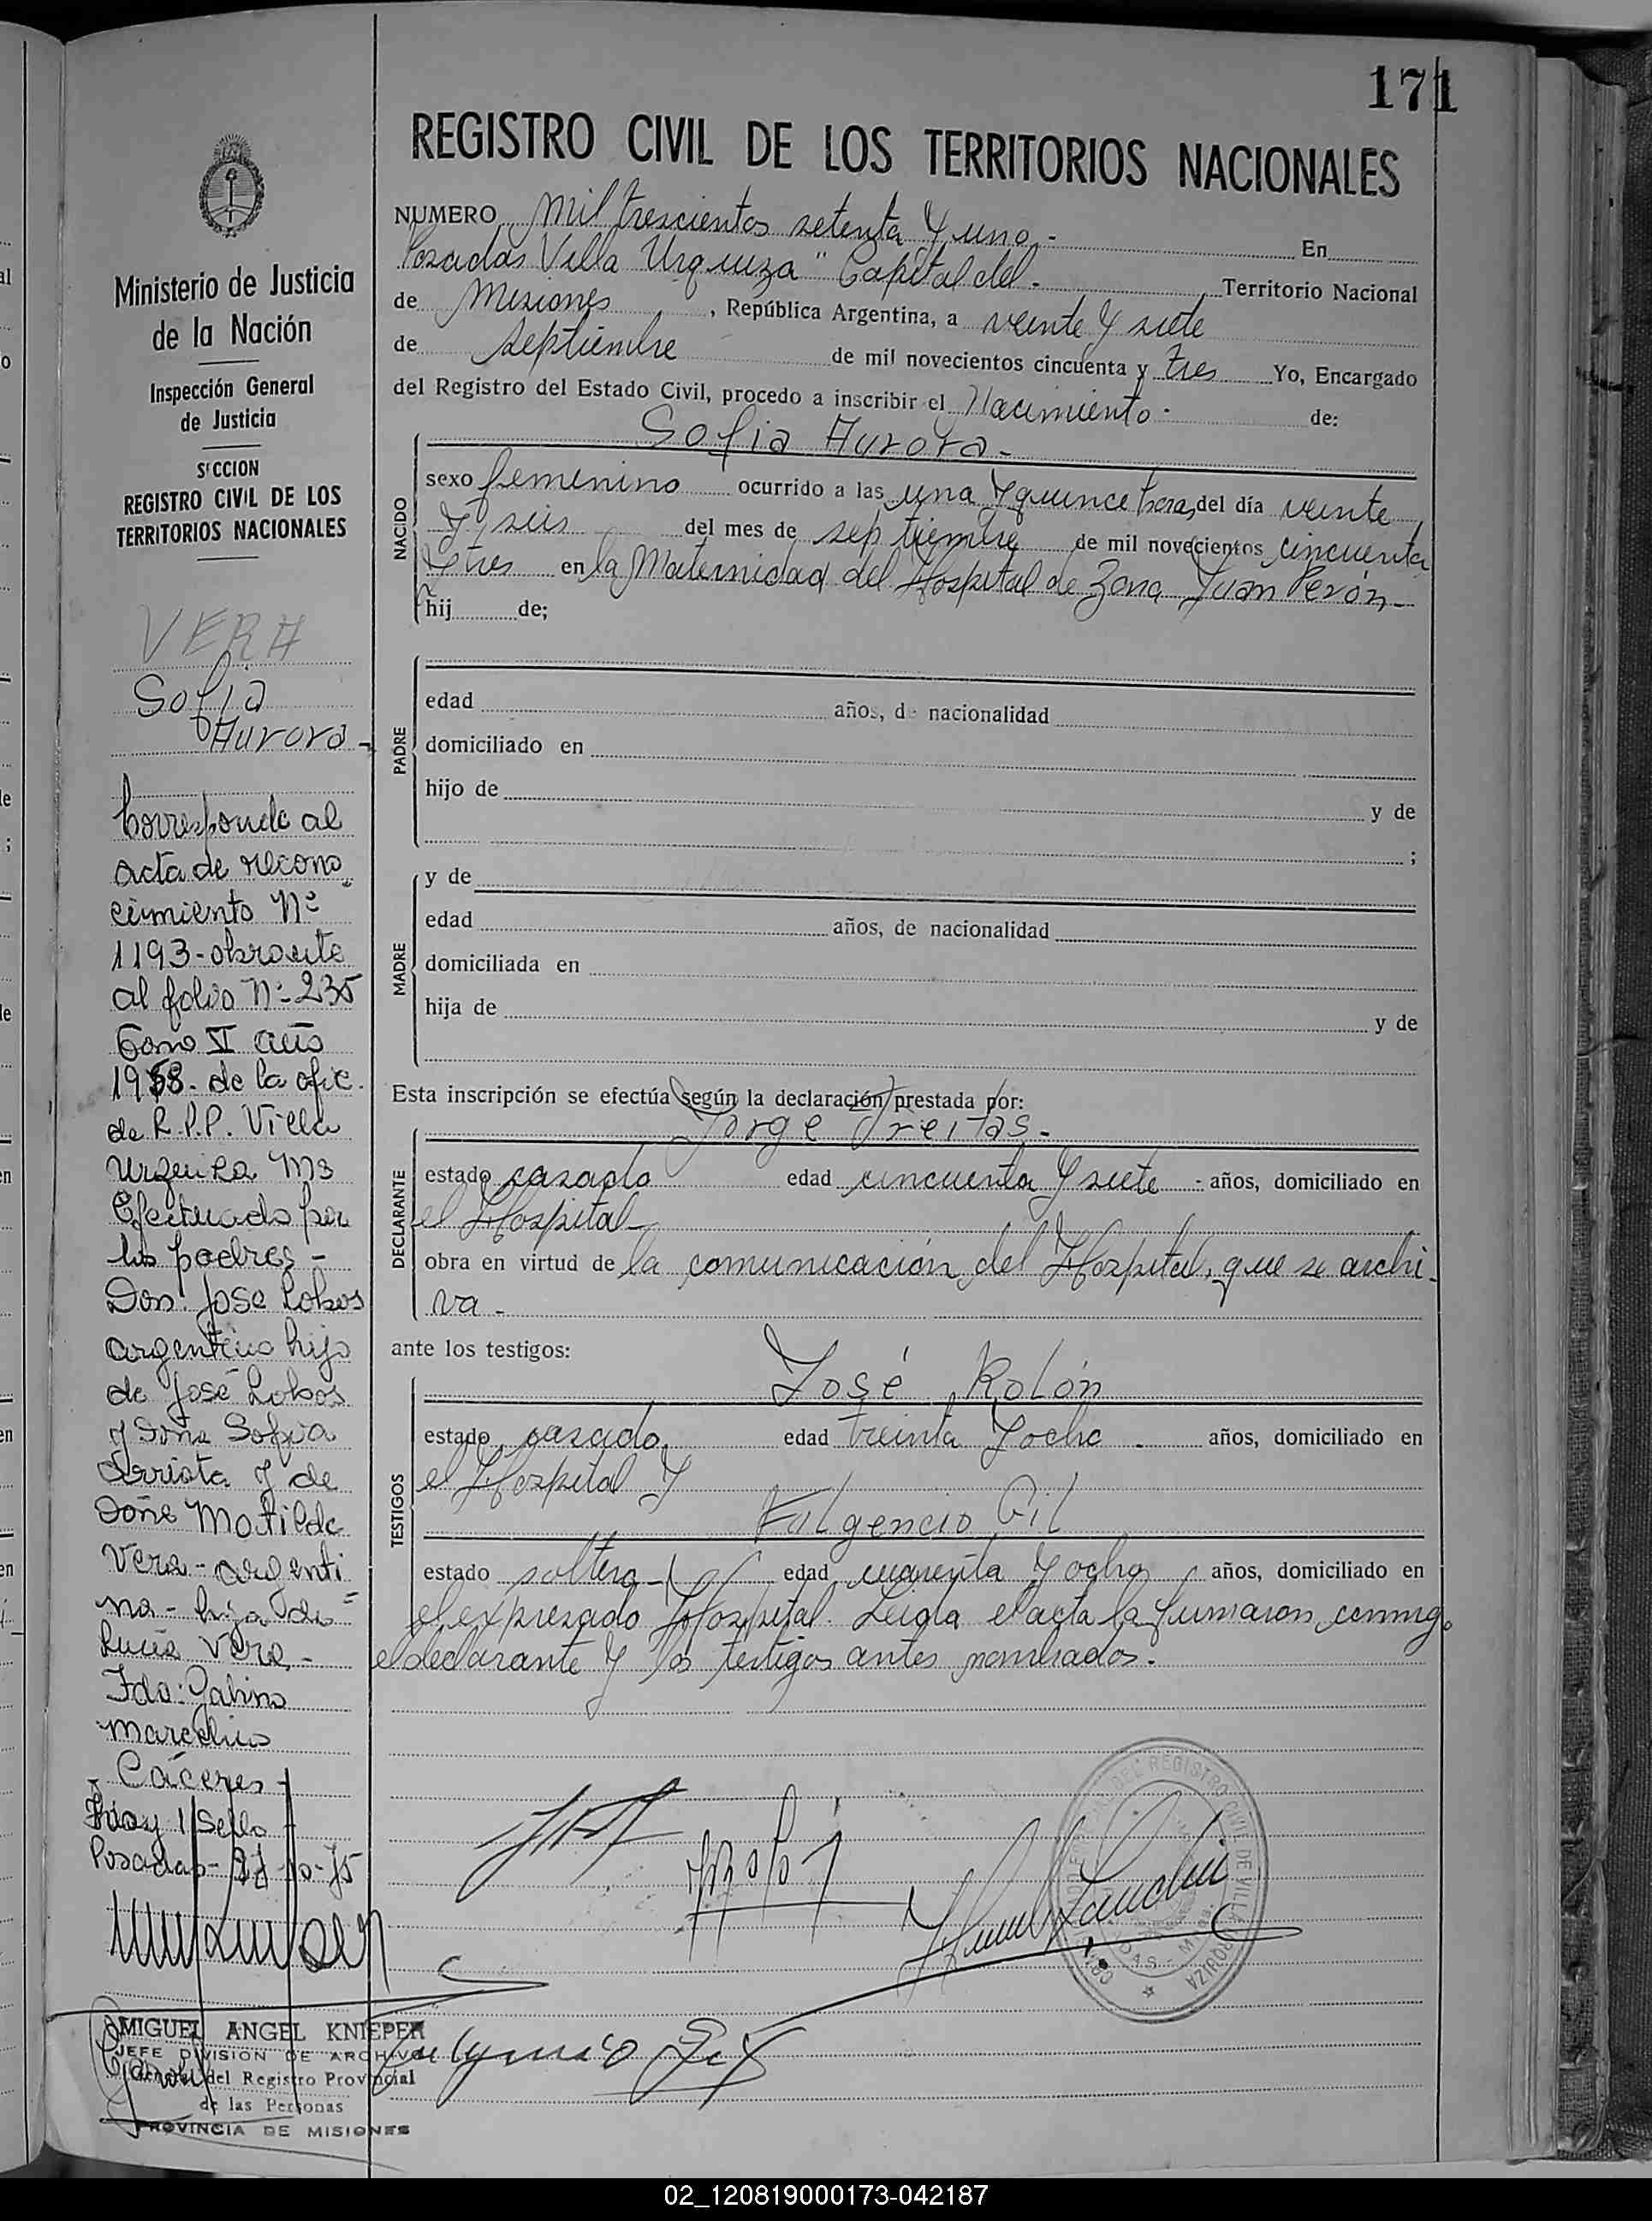 171
REGISTRO CIVIL DE LOS TERRITORIOS NACIONALES
NUMERO mil trescientos setenta y uno.- En
Posadas Villa Urquiza" Capital del.- Territorio Nacional
de Misiones, República Argentina, a veinte y siete
de septiembre de mil novecientos cincuenta y tres Yo, Encargado
del Registro del Estado Civil, procedo a inscribir el Nacimiento.- de:
Sofia Aurora.-
NACIDO
sexo femenino ocurrido a las una y quince horas, del día veinte
y seis del mes de septiembre de mil novecientos cincuenta
y tres en la Maternidad del Hospital de Zona Juan Perón.-
hij de;
PADRE
edad años, de nacionalidad
domiciliado en
hijo de y de
;
MADRE
y de
edad años, de nacionalidad
domiciliada en
hija de y de
Esta inscripción se efectúa según la declaración prestada por:
DECLARANTE
Jorge Freitas.-
estado casado edad cincuenta y siete - años, domiciliado en
el Hospital
obra en virtud de la comunicación del Hospital, que se archi-
va.-
ante los testigos:
TESTIGOS
José Rolón
estado casado, edad treinta y ocho - años, domiciliado en
el Hospital y
Fulgencio Gil
estado soltero - edad cuarenta y ocho años, domiciliado en
el expresado Hospital. Leida el acta la firmaron conmigo
el declarante y los testigos antes nombrados.-
Ministerio de Justicia
de la Nación
Inspección General
de Justicia
SECCION
REGISTRO CIVIL DE LOS
TERRITORIOS NACIONALES
VERA
Sofia
Aurora.-
Corresponde al
acta de recono
cimiento Nº
1193-obrante
al folio Nº 235
Tomo II año
1958. de la ofic.
de R.P.P. Villa
Urquiza Ms
Efectuado por
los padres -
Don José Lobos
argentino hijo
de José Lobos
y Doña Sofia
Arriota y de
Doña Matilde
Vera - argenti
na - hija de
Lucia Vera -
Fdo: Gabino
Marcelino
Cáceres -
Hay 1 Sello
Posadas - 10-75
MIGUEL ANGEL KNIEPER
JEFE DIVISION DE ARCHIVO
General del Registro Provincial
de las Personas
PROVINCIA DE MISIONES
Fulgencio Gil
02_120819000173-042187